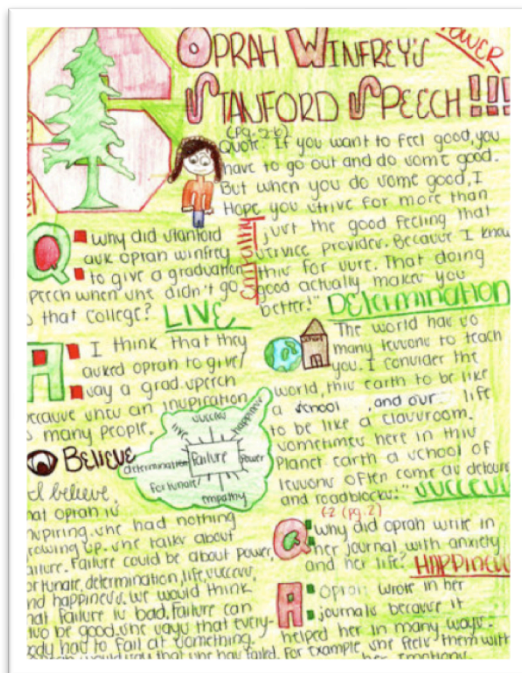 OPRAH WINFREY'S
POWER
STANFORD SPEECH!!!
(pg. 2-6)
Quote: "If you want to feel good, you
have to go out and do some good.
But when you do some good, I
Hope you strive for more than
just the good feeling that
service provides. Because I know
this for sure. That doing
good actually makes you
better!"
Empathy
DETERMINATION
Q: why did stanford
ask oprah winfrey
to give a graduation
speech when she didn't go
that college?
LIVE
A: I think that they
asked oprah to give
a grad speech
because she's an inspiration
many people.
BELIEVE
I believe
that oprah is
inspiring. she had nothing
growing up. she talks about
failure. Failure could be about power,
fortunate, determination, life, success,
and happiness. we would think
that failure is bad. Failure can
also be good. she says that every-
body had to fail at something.
that she has failed.
success
happiness
life
determination
Failure
power
fortunate
empathy
school
The world has so
many lessons to teach
you. I consider the
world, this earth to be like
a school and our life
to be like a classroom.
sometimes here in this
Planet earth a school of
lessons often come as detours
and roadblocks!"
SUCCESS
(pg. 2)
Q: why did oprah write in
her journal with anxiety
and her life?
HAPPINESS
A: oprah wrote in her
journals because it
helped her in many ways.
For example, she feels them with
her emotions